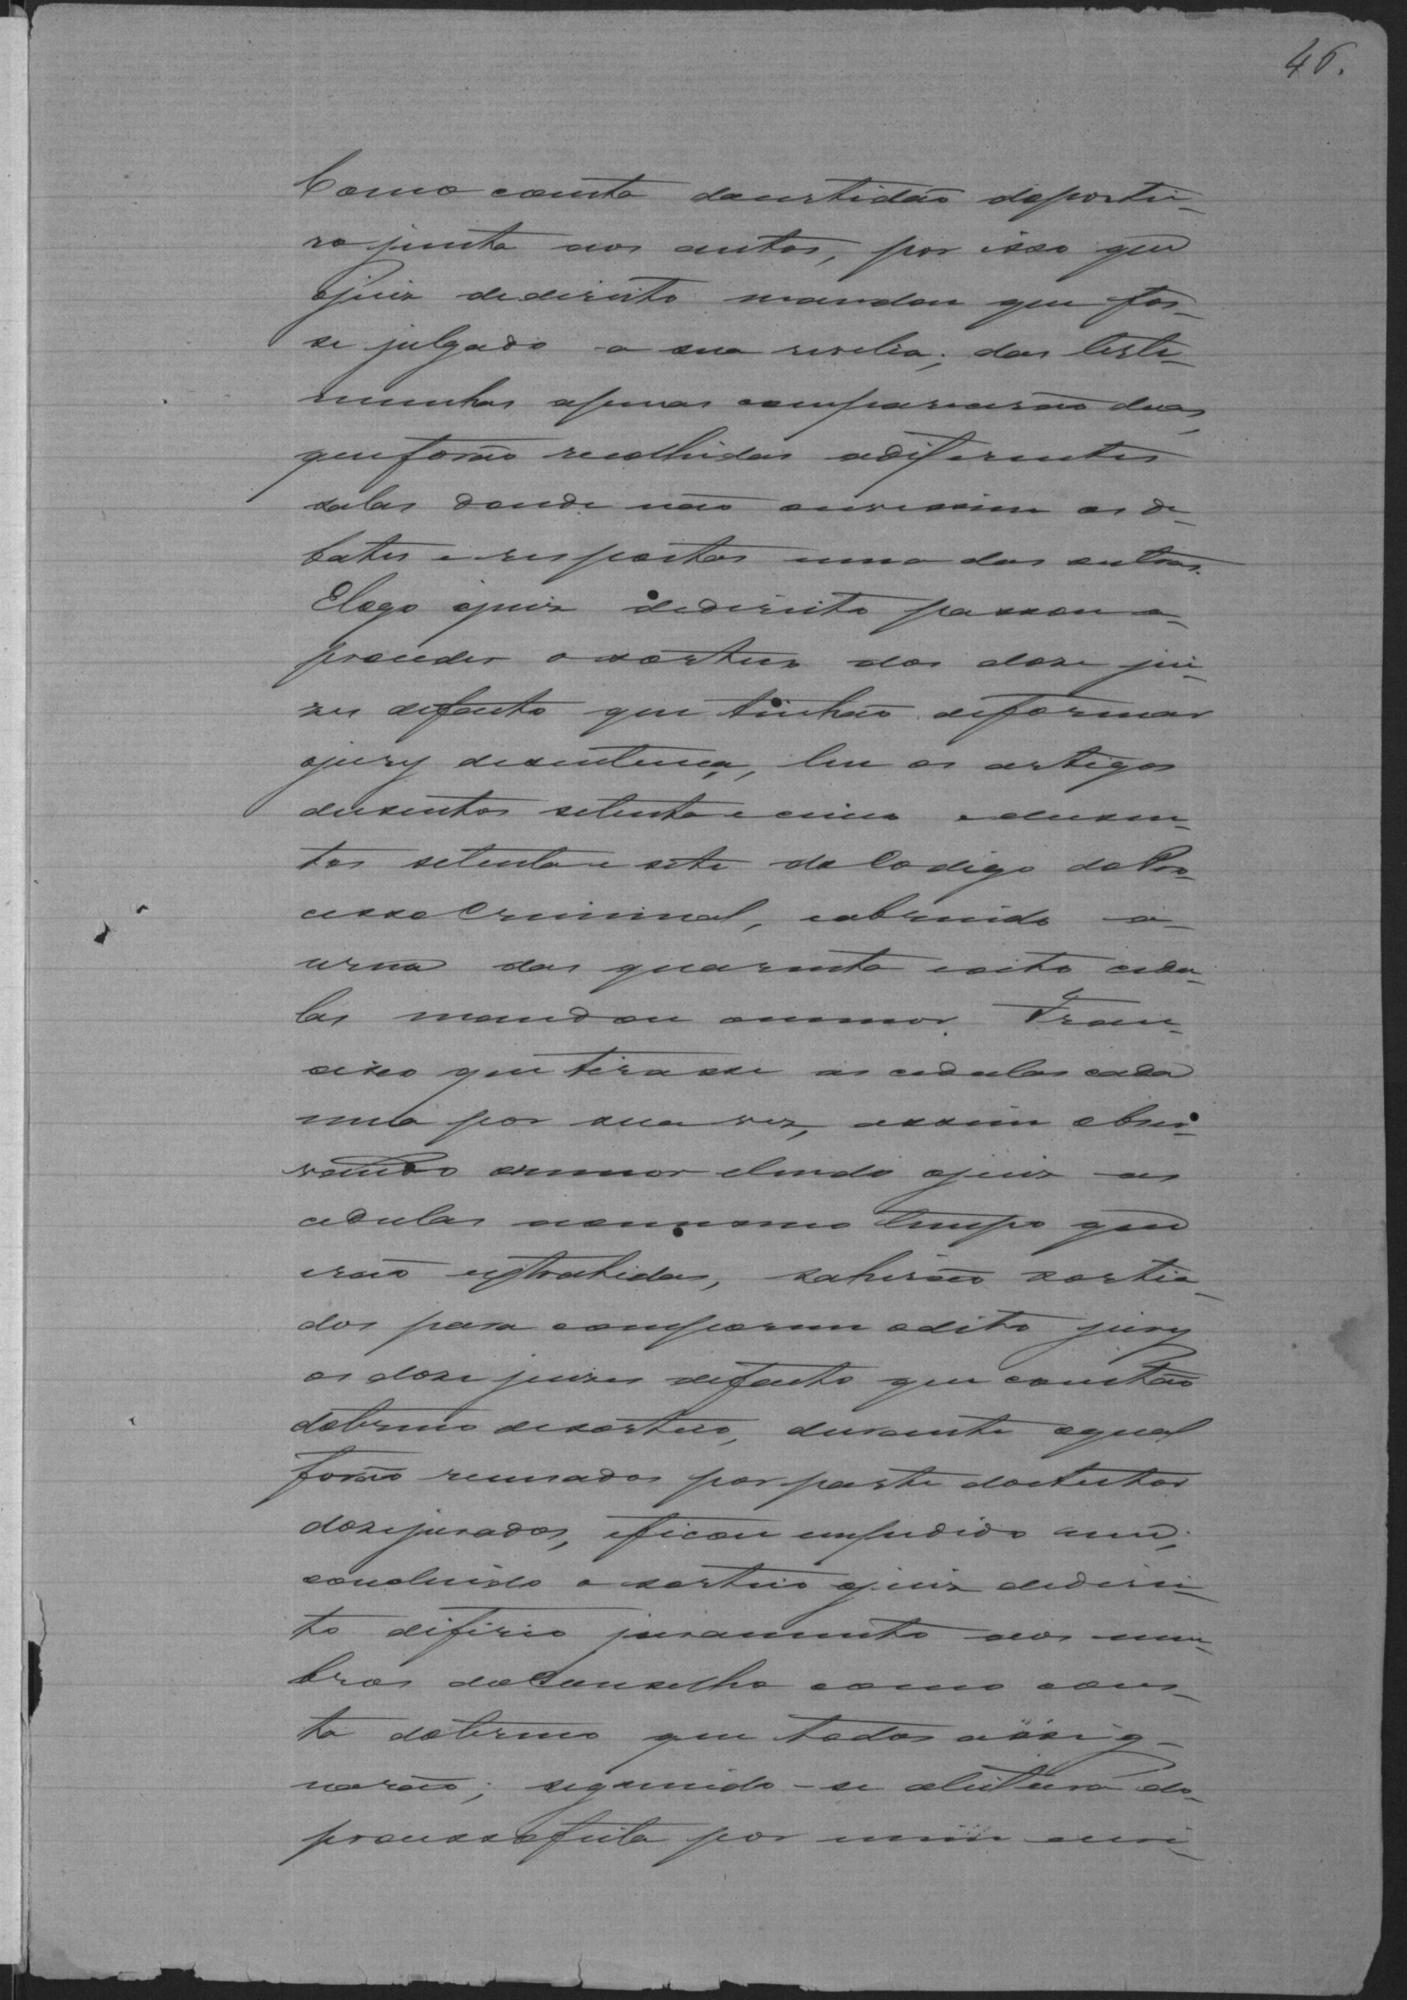 46.
Como consta dacertidão doportei-
ro junta aos autos, por isso que
ojuiz dedireito mandou que fos-
se julgado a sua revelia; das teste-
munhas apenas comparecerão duas,
queforão recolhidas adiferentes
salas donde não ouvissem os de-
bates e respostas uma das outras.
Elogo ojuiz dedireito passou a-
proceder osorteio dos doze jui-
zes defacto que tinhão deformar
ojury desentença, leu os artigos
dusentos setenta e cinco edusen-
tos setenta e sete do Codigo do Pro-
cesso Criminal, eabrindo a-
urna das quarenta eoito cedu-
las mandou omenor Fran-
cisco que tirasse as cedulas cada
uma por sua vez, assim obser-
vando omenor elendo ojuiz as
cedulas aomesmo tempo que
erão extrahidas, sahirão sortia-
dos para comporem odito jury
os doze juizes defacto que constão
dotermo desorteio, durante oqual
forão recusados por parte doautor
dozejurados, eficou impedido um;
concluido o sorteio ojuiz dedirei-
to diferio juramento aos mem-
bros doConselho como cons-
ta dotermo que todos assig-
narão; seguindo-se aleitura do
processofeita por mim escri-